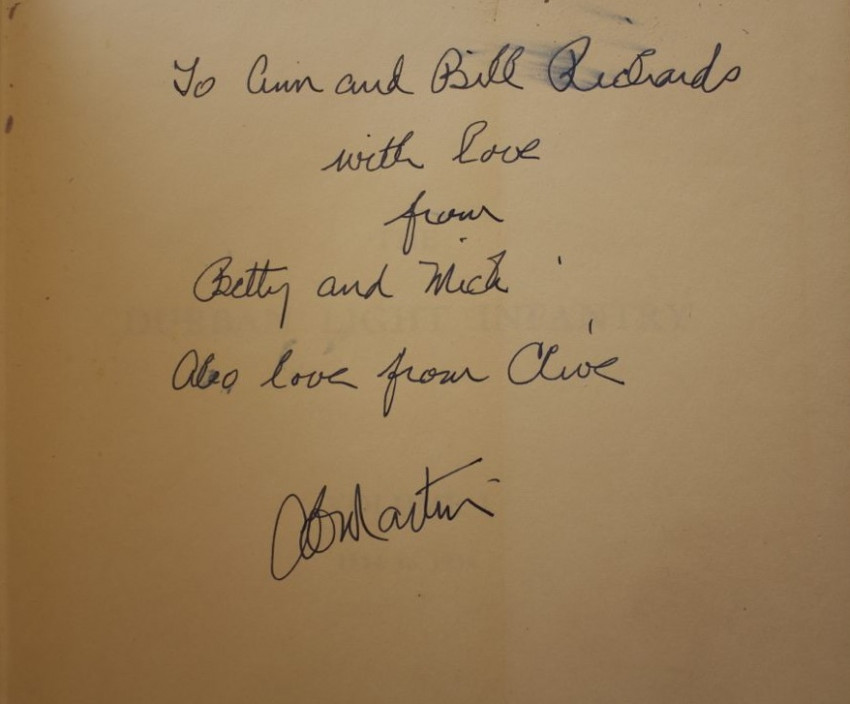 To Ann and Bill Richards
with love
from
Betty and Mick
DURBAN LIGHT INFANTRY
Also love from Clive
Martin